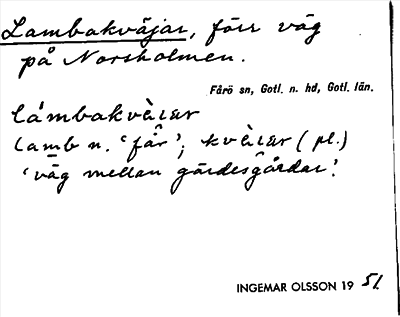 Lambakväjar, förr väg
på Norsholmen.
Fårö sn, Gotl. n. hd, Gotl. län.
lámbakvàiar
lamb n. 'får'; kvàiar (pl.)
'väg mellan gärdesgårdar'.
INGEMAR OLSSON 19 51